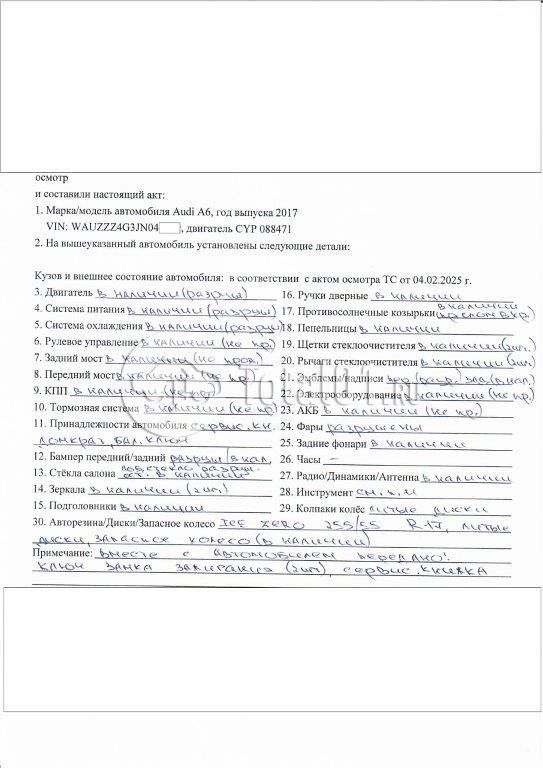 осмотр
и составили настоящий акт:
1. Марка/модель автомобиля Audi A6, год выпуска 2017
VIN: WAUZZZ4G3JN04 , двигатель CYP 088471
2. На вышеуказанный автомобиль установлены следующие детали:
Кузов и внешнее состояние автомобиля: в соответствии с актом осмотра ТС от 04.02.2025 г.
3. Двигатель в наличии (разруш)
4. Система питания в наличии (разруш)
5. Система охлаждения в наличии (разруш)
6. Рулевое управление в наличии (не пр.)
7. Задний мост в наличии (не пров.)
8. Передний мост в наличии (не пр.)
9. КПП в наличии (не пр)
10. Тормозная система в наличии (не пр)
11. Принадлежности автомобиля сервис. кн.
домкрат, бал. ключ
12. Бампер передний/задний разруш / в нал.
13. Стёкла салона разруш.
ост. в наличии
14. Зеркала в наличии (2шт)
15. Подголовники в наличии
16. Ручки дверные в наличии
17. Противосолнечные козырьки в наличии
18. Пепельницы в наличии
19. Щетки стеклоочистителя в наличии (2шт.)
20. Рычаги стеклоочистителя в наличии (2шт)
21. Эмблемы/надписи пер. разр. зад. (в нал.)
22. Электрооборудование в наличии (не пр.)
23. АКБ в наличии (не пр.)
24. Фары разрушены
25. Задние фонари в наличии
26. Часы –
27. Радио/Динамики/Антенна в наличии
28. Инструмент см. п. 11
29. Колпаки колёс литые диски
30. Авторезина/Диски/Запасное колесо ICE ZERO 255/55 R-17, литые
диски, запасное колесо (в наличии)
Примечание: вместе с автомобилем передано:
ключ замка зажигания (2шт), сервис. книжка
Total01.ru